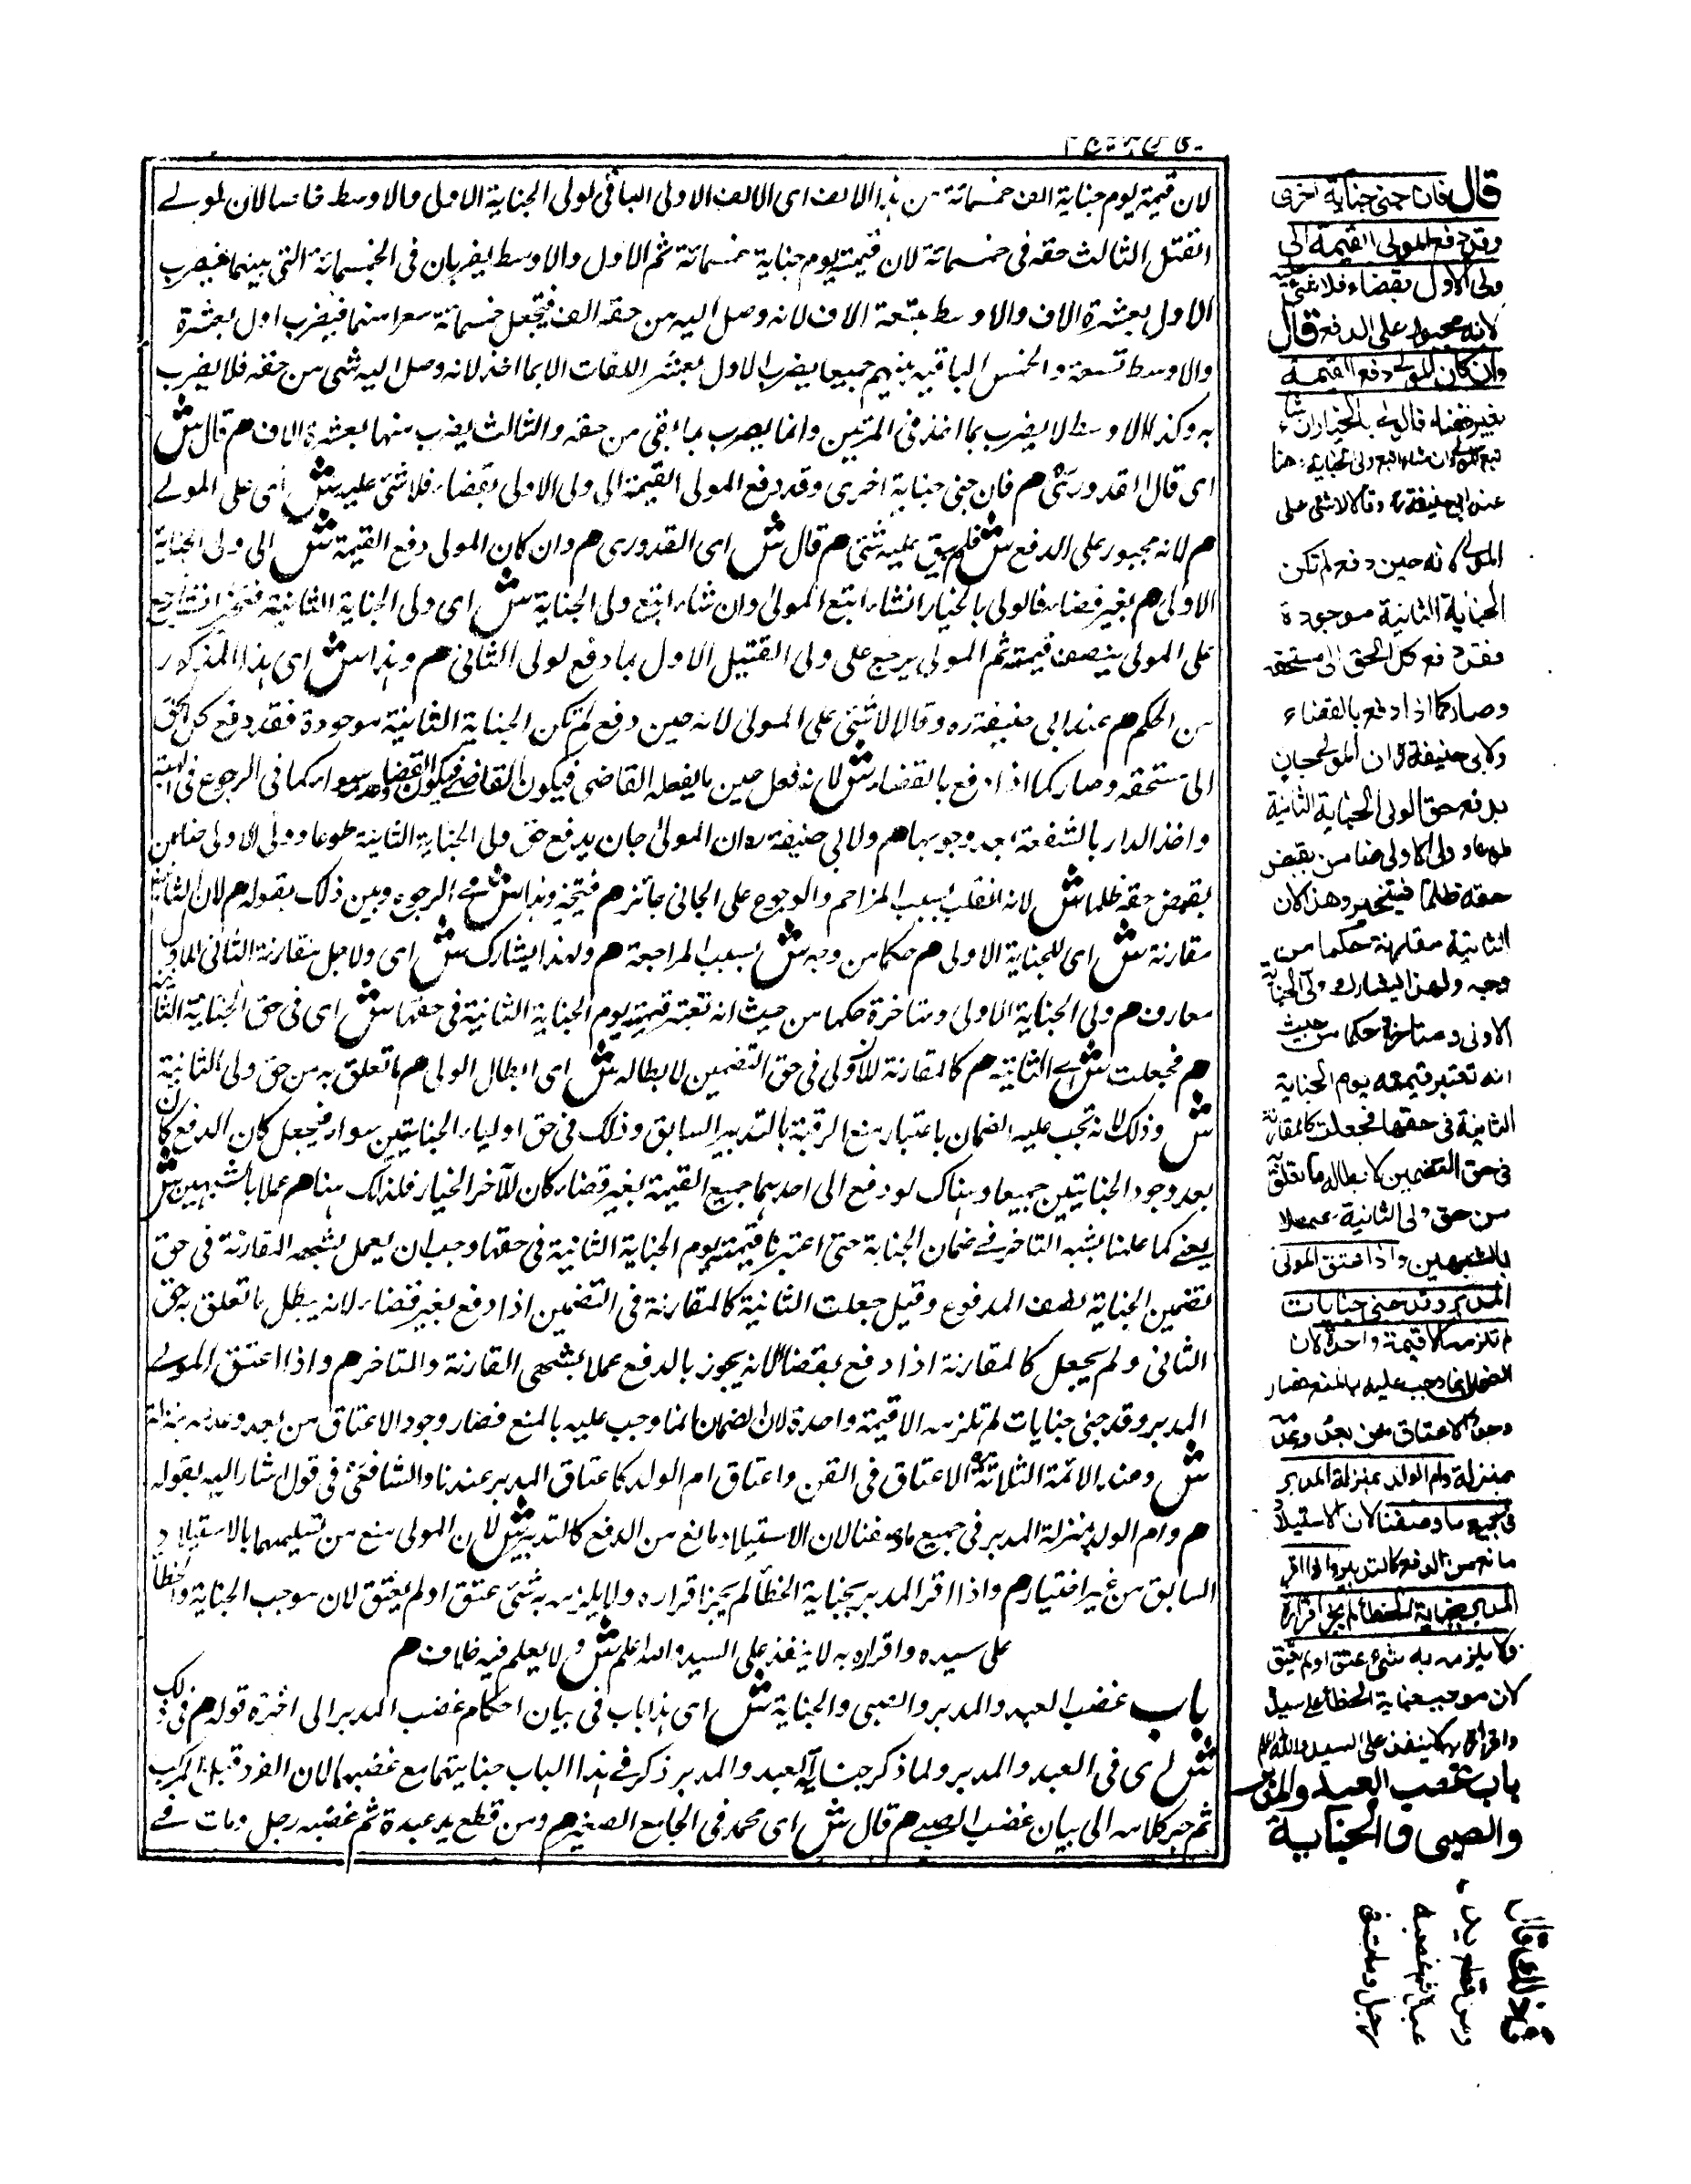 لان قيمته يوم جناية الف خمسمائة من هذا الالف اى الالف الاولى الباقى لولى الجناية الاولى والاوسط خاصا لان لمولے
القتل الثالث حقه فى خمسمائة لان قيمته يوم جناية خمسمائة ثم الاول والاوسط يضربان فى الخمسمائة التى بينهما فيضرب
الاول بعشرة الاف والاوسط بتسعة الاف لانه وصل اليه من حقه الف فيجعل خمسمائة منهما فيضرب اول بعشرة
والاوسط تسعة والخمس الباقية بينهم جميعا يضرب الاول بعشر الافات الا بما اخذ لانه وصل اليه شى من حقه فلا يضرب
به وكذا الاوسط لا يضرب بما اخذ فى المرتين وانما يضرب بما بقى من حقه والثالث يضرب منها بعشرة الاف هم قال ش
اى قال القدورى هم فان جنى جناية اخرى وقد دفع المولى القيمة الى ولى الاولى بقضاء فلا شئ عليه ش اى على المولے
هم لانه مجبور على الدفع ش فلم يبق عليه شئ هم قال ش اى القدورى هم وان كان المولى دفع القيمة ش الى ولى الجناية
الاولى هم بغير قضاء فالولى بالخيار انشاء اتبع المولى وان شاء اتبع ولى الجناية ش اى ولى الجناية الثانية
على المولى بنصف قيمته ثم المولى يرجع على ولى القتيل الاول بما دفع لولى الثانى هم وهذا ش اى هذا المذكور
من الحكم هم عند ابى حنيفة ره وقالا لا شئ على المولى لانه حين دفع لم تكن الجناية الثانية موجودة فقد دفع كل الحق
الى مستحقه وصار كما اذا دفع بالقضاء ش لانه فعل حين ما يفعله القاضى فيكون القضاء وعدمه سواء كما فى الرجوع فى الهبة
واخذ الدار بالشفعة بعد وجوبها هم ولابى حنيفة ره ان المولى جان بدفع حق ولى الجناية الثانية طوعا وولى الاولى ضامن
بقبض حقه ظلما ش لانه انقلب بسبب المزاحم والرجوع على الجانى جائز هم فيتخير وهذا ش فے الرجوع وبين ذلك بقوله هم لان الثانية
مقارنة ش اى للجناية الاولى هم حكما من وجه ش بسبب المراجعة هم ولهذا يشارك ش اى ولاجل مقارنة الثانى للاول
هم ولى الجناية الاولى ومتاخرة حكما من حيث انه تعتبر قيمته يوم الجناية الثانية فى حقها ش اى فى حق الجناية الثانية
هم فجعلت ش اے الثانية هم كالمقارنة للاولى فى حق التضمين لابطاله ش اى ابطال الولى هم ما تعلق به من حق ولى الثانية
ش وذلك لانه تجب عليه الضمان باعتبار منع الرقبة بالتدبير السابق وذلك فى حق اولياء الجنايتين سواء فيجعل كان الدفع كان
بعد وجود الجنايتين جميعا وهناك لو دفع الى احدهما جميع القيمة بغير قضاء كان للآخر الخيار فلذلك هنا هم عملا بالشبهين ش
يعنے كما عملنا بشبه التاخر فے ضمان الجناية حتى اعتبرنا قيمته يوم الجناية الثانية فى حقها وجب ان يعمل بشبهه المقارنة فى حق
تضمين الجناية نصف المدفوع وقيل جعلت الثانية كالمقارنة فى التضمين اذا دفع بغير قضاء لانه يبطل ما تعلق به حق
الثانى ولم يجعل كالمقارنة اذا دفع بقضاء لانه يجوز بالدفع عملا بشبهى المقارنة والتاخر هم واذا اعتق المولے
المدبر وقد جنى جنايات لم تلزمه الا قيمة واحدة لان الضمان انما وجب عليه بالمنع فصار وجود الاعتاق من بعد وعدمه بمنزلة
ش وعند الائمة الثلاثة الاعتاق فى القن واعتاق ام الولد كاعتاق المدبر عندنا والشافعى فى قول اشار اليه بقوله
هم وام الولد بمنزلة المدبر فى جميع ما وصفنا لان الاستيلاد مانع من الدفع كالتدبير ش لان المولى منع من تسليمهما بالاستيلاد
السابق من غير اختيار هم واذا اقر المدبر بجناية الخطأ لم يجز اقراره ولا يلزمه به شئ عتق او لم يعتق لان موجب الجناية الخطأ
على سيده واقراره به لا ينفذ على السيد والله اعلم ش ولا يعلم فيه خلاف هم
باب غصب العبد والمدبر والصبى والجناية ش اى هذا باب فى بيان احكام غصب المدبر الى اخره قوله هم فى ذلك
ش اى فى العبد والمدبر ولما ذكر جناية العبد والمدبر ذكر فے هذا الباب جنايتهما مع غصبهما لان الفرد قبل المركب
ثم جر كلامه الى بيان غصب الصبے هم قال ش اى محمد فى الجامع الصغير هم ومن قطع يد عبده ثم غصبه رجل ومات فے
قال فان جنى جناية اخرى
وقد دفع المولى القيمة الى
ولى الاول بقضاء فلا شئ عليه
لانه مجبور على الدفع قال
وان كان المولى دفع القيمة
بغير قضاء فالولى بالخيار ان شاء
اتبع المولى وان شاء اتبع ولى الجناية وهذا
عند ابى حنيفة ره وقالا لا شئ على
المولى لانه حين دفع لم تكن
الجناية الثانية موجودة
فقد دفع كل الحق الى مستحقه
وصار كما اذا دفع بالقضاء
ولابى حنيفة ره ان المولى جان
بدفع حق الولى الجناية الثانية
طوعا وولى الاولى ضامن بقبض
حقه ظلما فيتخير وهذا لان
الثانية مقارنة حكما من
وجه ولهذا يشارك ولى الجناية
الاولى ومتاخرة حكما من حيث
انه تعتبر قيمته يوم الجناية
الثانية فى حقها فجعلت كالمقارنة
فى حق التضمين لابطاله ما تعلق به
من حق ولى الثانية عملا
بالشبهين واذا اعتق المولى
المدبر وقد جنى جنايات
لم تلزمه الا قيمة واحدة لان
الضمان انما وجب عليه بالمنع فصار
وجود الاعتاق من بعد وعدمه
بمنزلة وام الولد بمنزلة المدبر
فى جميع ما وصفنا لان الاستيلاد
مانع من الدفع كالتدبير واذا اقر
المدبر بجناية الخطأ لم يجز اقراره
ولا يلزمه به شئ عتق او لم يعتق
لان موجب جناية الخطأ على سيده
واقراره به لا ينفذ على السيد والله اعلم
باب غصب العبد والمدبر
والصبى والجناية
قال
ومن قطع يد
عبده ثم غصبه
رجل ومات فى